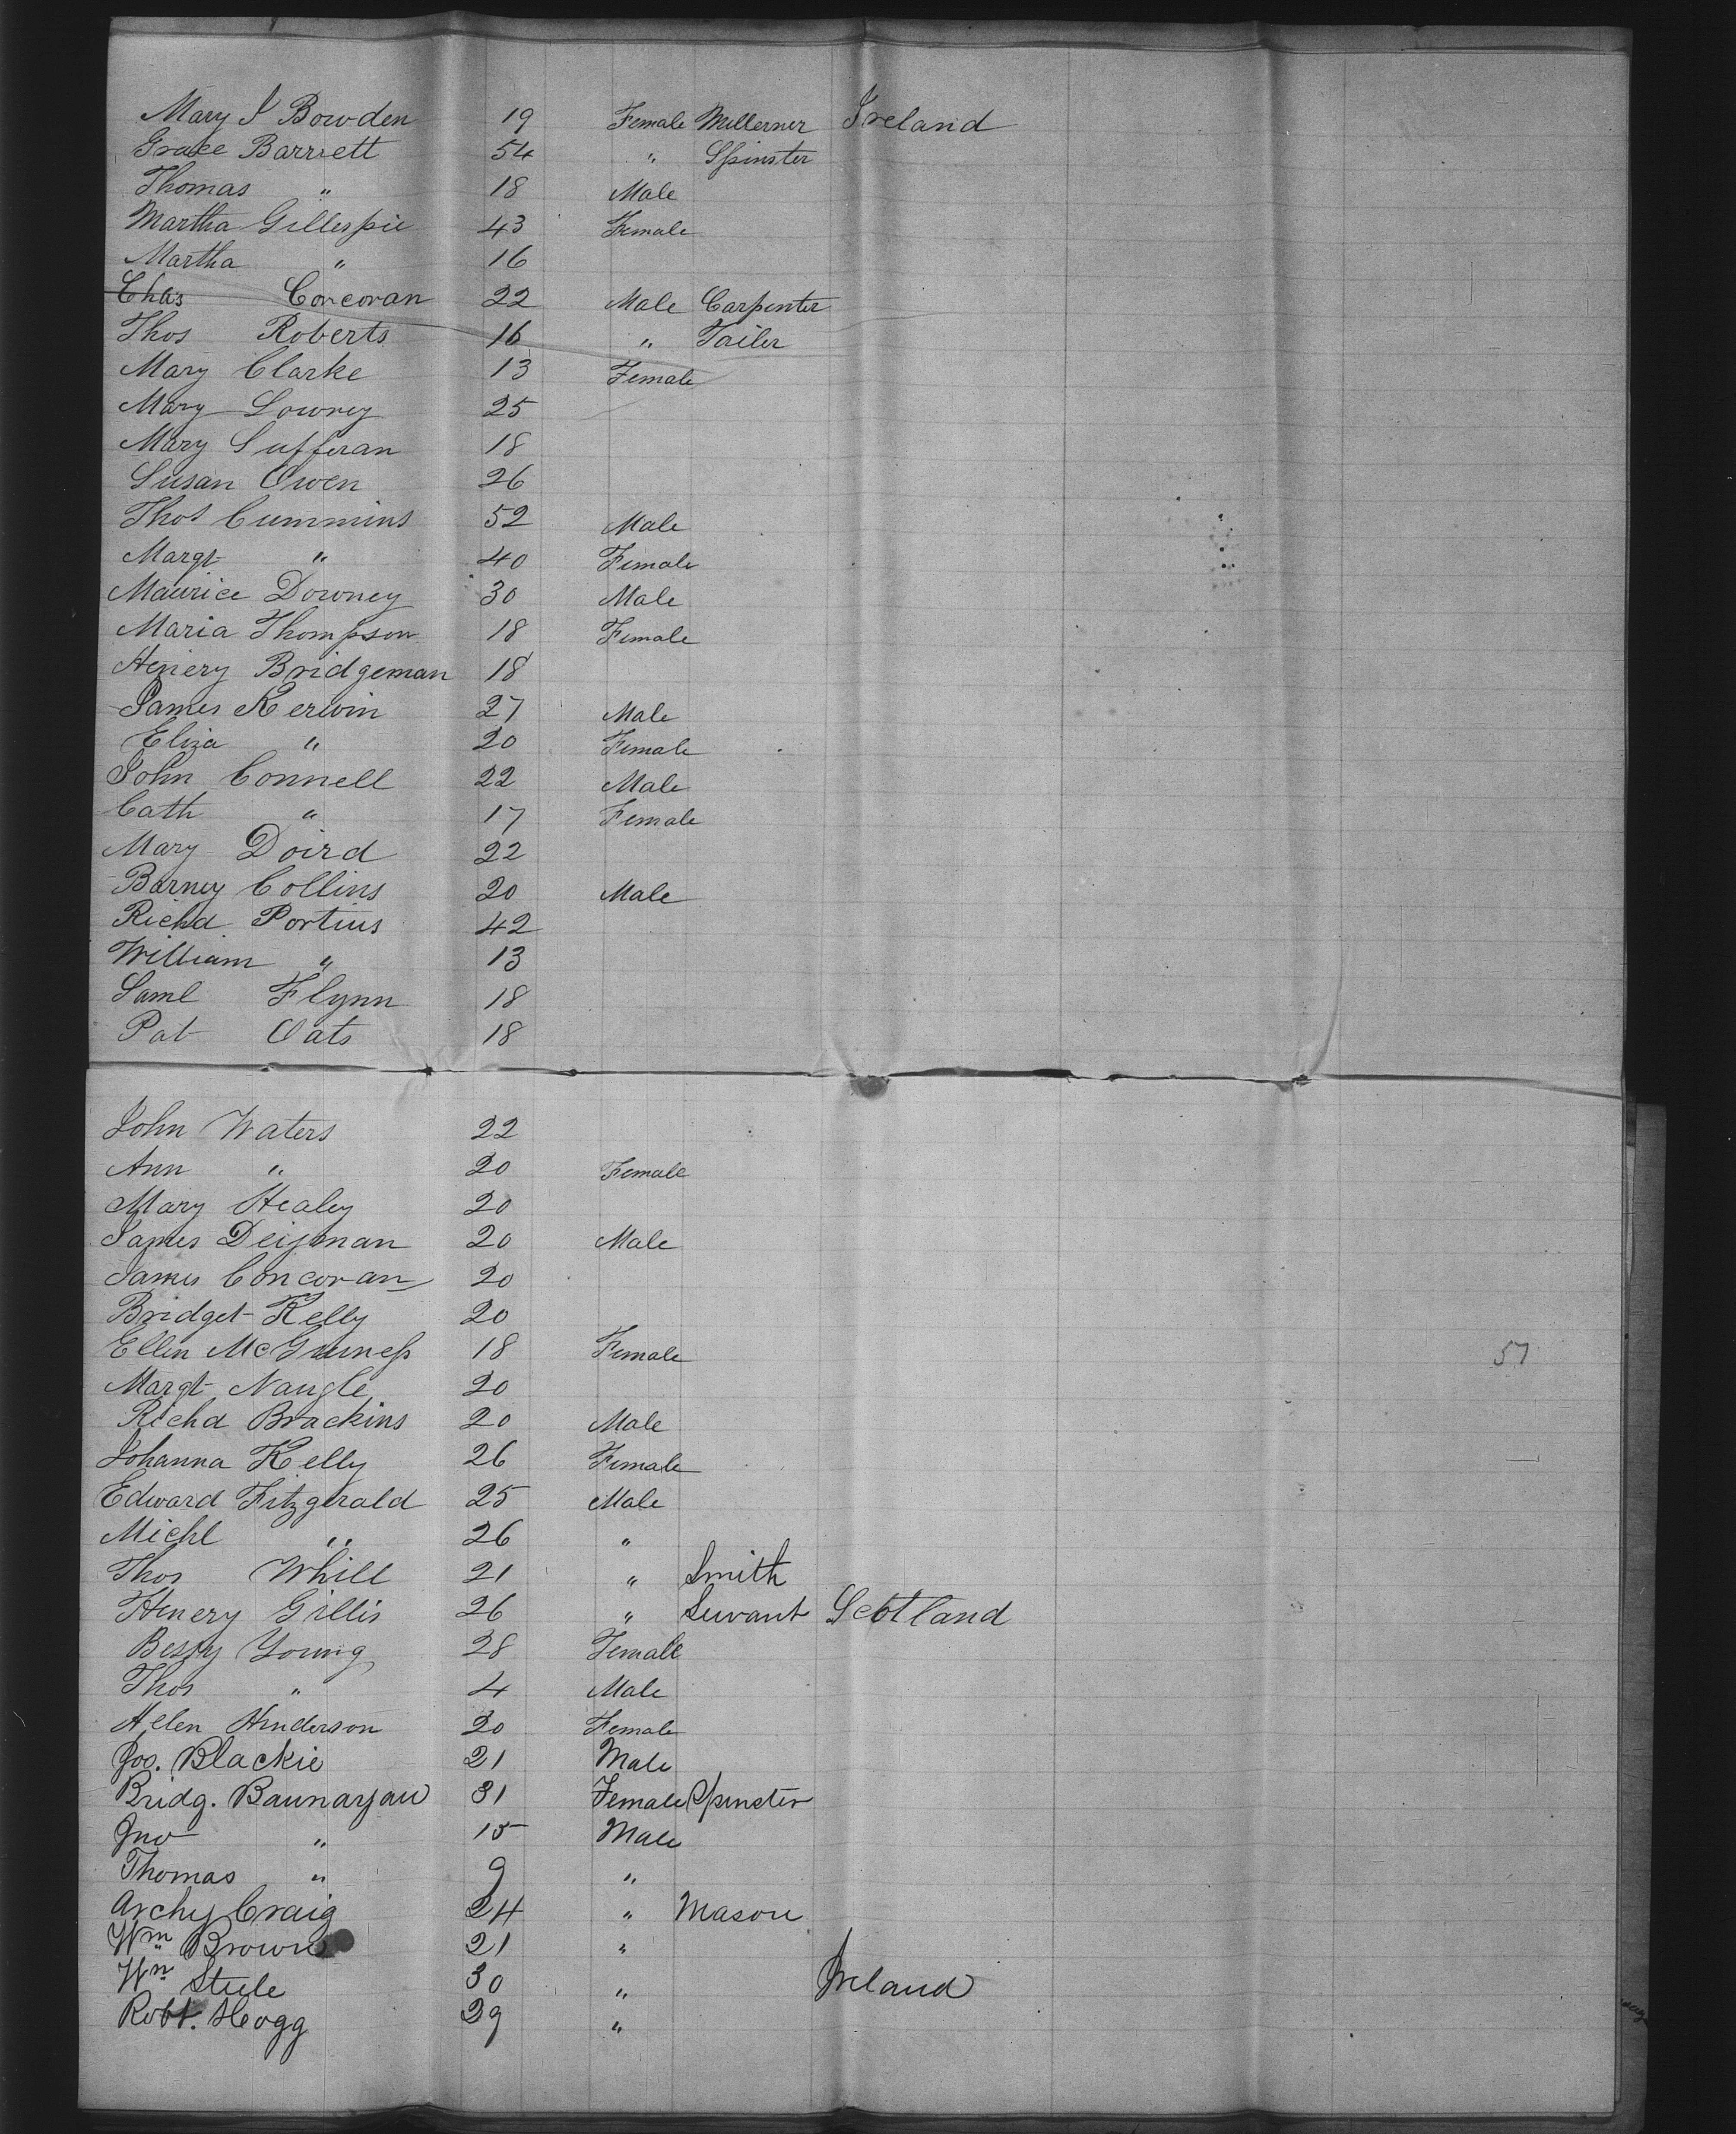 Mary J Bowden 19 Female Millerner Ireland
Grace Barrett 54 " Spinster
Thomas " 18 Male
Martha Gillespie 43 Female
Martha " 16
Chas Corcoran 22 Male Carpenter
Thos Roberts 16 " Tailer
Mary Clarke 13 Female
Mary Lowrey 25
Mary Sufferan 18
Susan Owen 26
Thos Cummins 52 Male
Margt " 40 Female
Maurice Downey 30 Male
Maria Thompson 18 Female
Henery Bridgeman 18
James Kerwin 27 Male
Eliza " 20 Female
John Connell 22 Male
Cath " 17 Female
Mary Doird 22
Barney Collins 20 Male
Richd Portius 42
William " 13
Saml Flynn 18
Pat Oats 18
John Waters 22
Ann " 20 Female
Mary Healey 20
James Deigman 20 Male
James Concoran 20
Bridget Kelly 20
Ellen McGuiness 18 Female
57
Margt Naugle 20
Richd Brackins 20 Male
Johanna Kelly 26 Female
Edward Fitzgerald 25 Male
Michl " 26 "
Thos Whill 21 " Smith
Henery Gillis 26 " Servant Scotland
Bessy Young 28 Female
Thos " 4 Male
Helen Henderson 20 Female
Jos. Blackie 21 Male
Bridg. 31 Female Spinster
Jno " 15 Male
Thomas " 9 "
Archy Craig 24 " Mason
Wm Brown 21 "
Wm Steele 30 " Ireland
Robt. Hogg 29 "